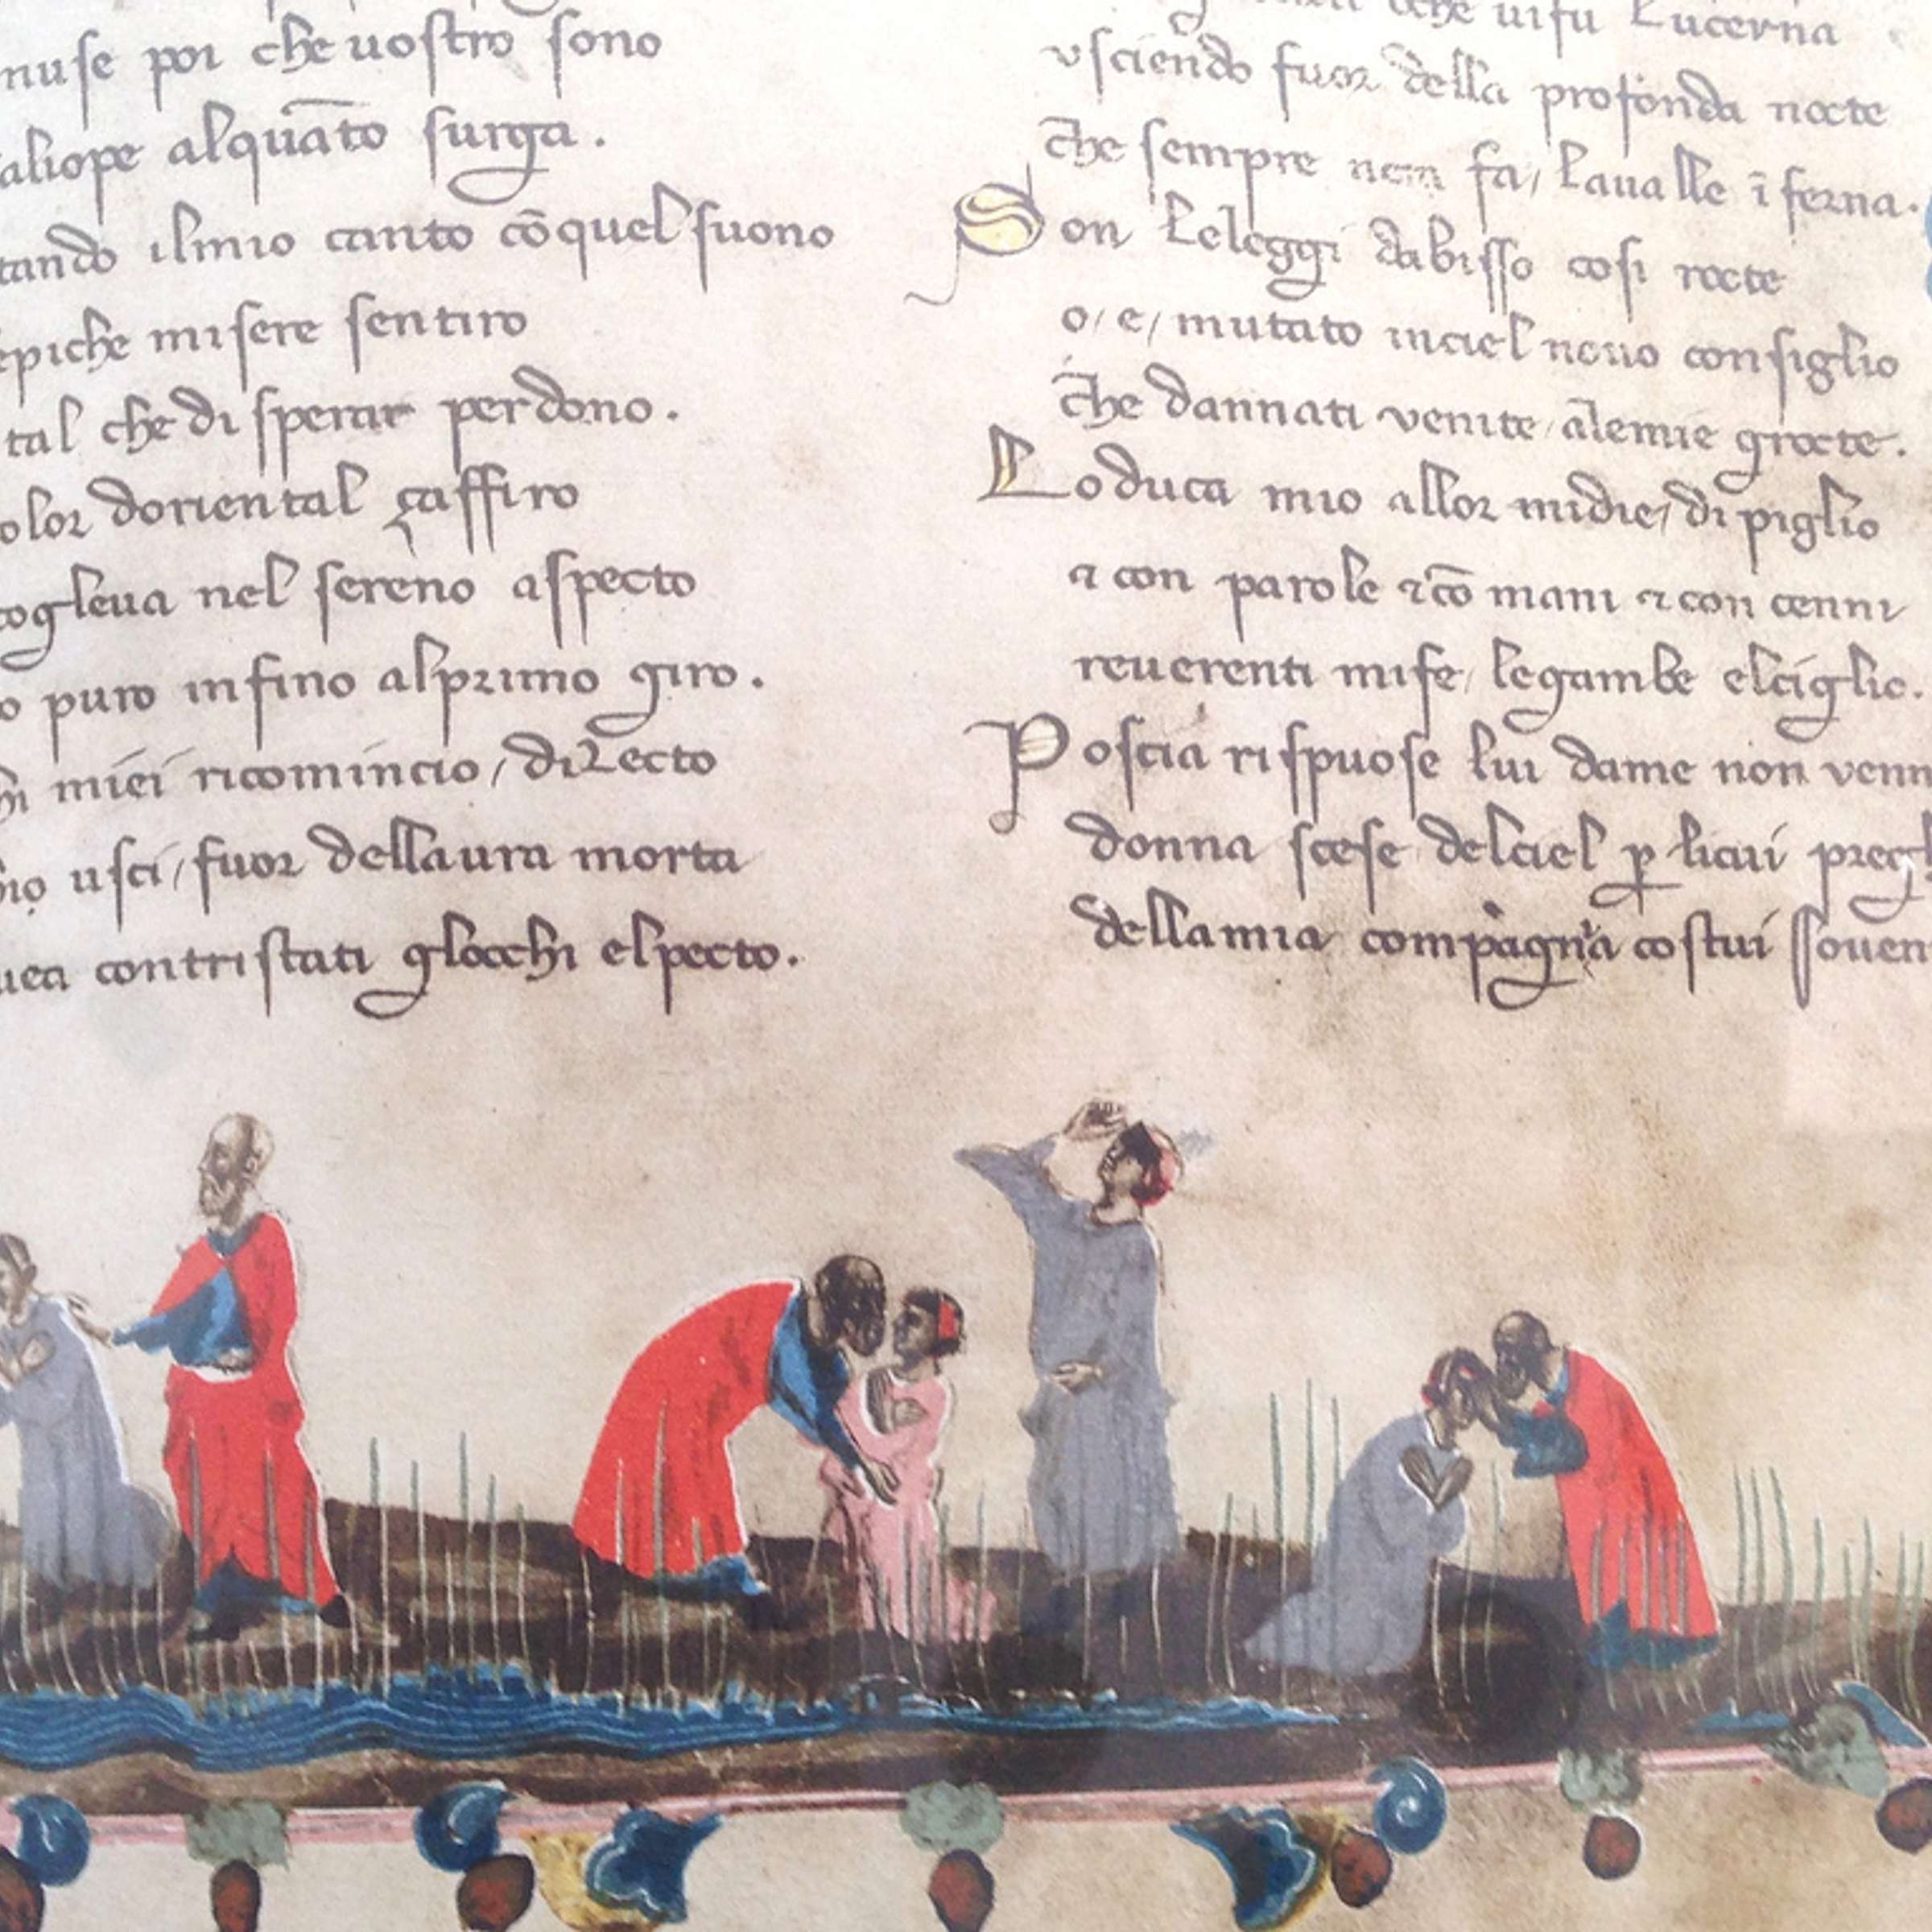 nuse poi che uostro sono
aliope alquāto surga.
tando ilmio canto cōquel suono
epiche misere sentiro
tal che di sperar perdono.
olor doriental çaffiro
cogleua nel sereno aspecto
o puro infino alprimo giro.
hi miei ricomincio, dilecto
hio usci, fuor dellaura morta
uea contristati glocchi elpecto.
che uifu Lucerna
vsciendo fuor della profonda nocte
che sempre nera fa, laualle īferna.
Son leleggi dabisso cosi rocte
o, e, mutato inciel nouo consiglio
che dannati venite, alemie grocte.
Loduca mio allor midie, di piglio
⁊ con parole ⁊ cō mani ⁊ con cenni
reuerenti mife, legambe elciglio.
Poscia rispuose lui dame non venn
donna scese delciel ꝑ licui pregh
dellamia compagnia costui souen